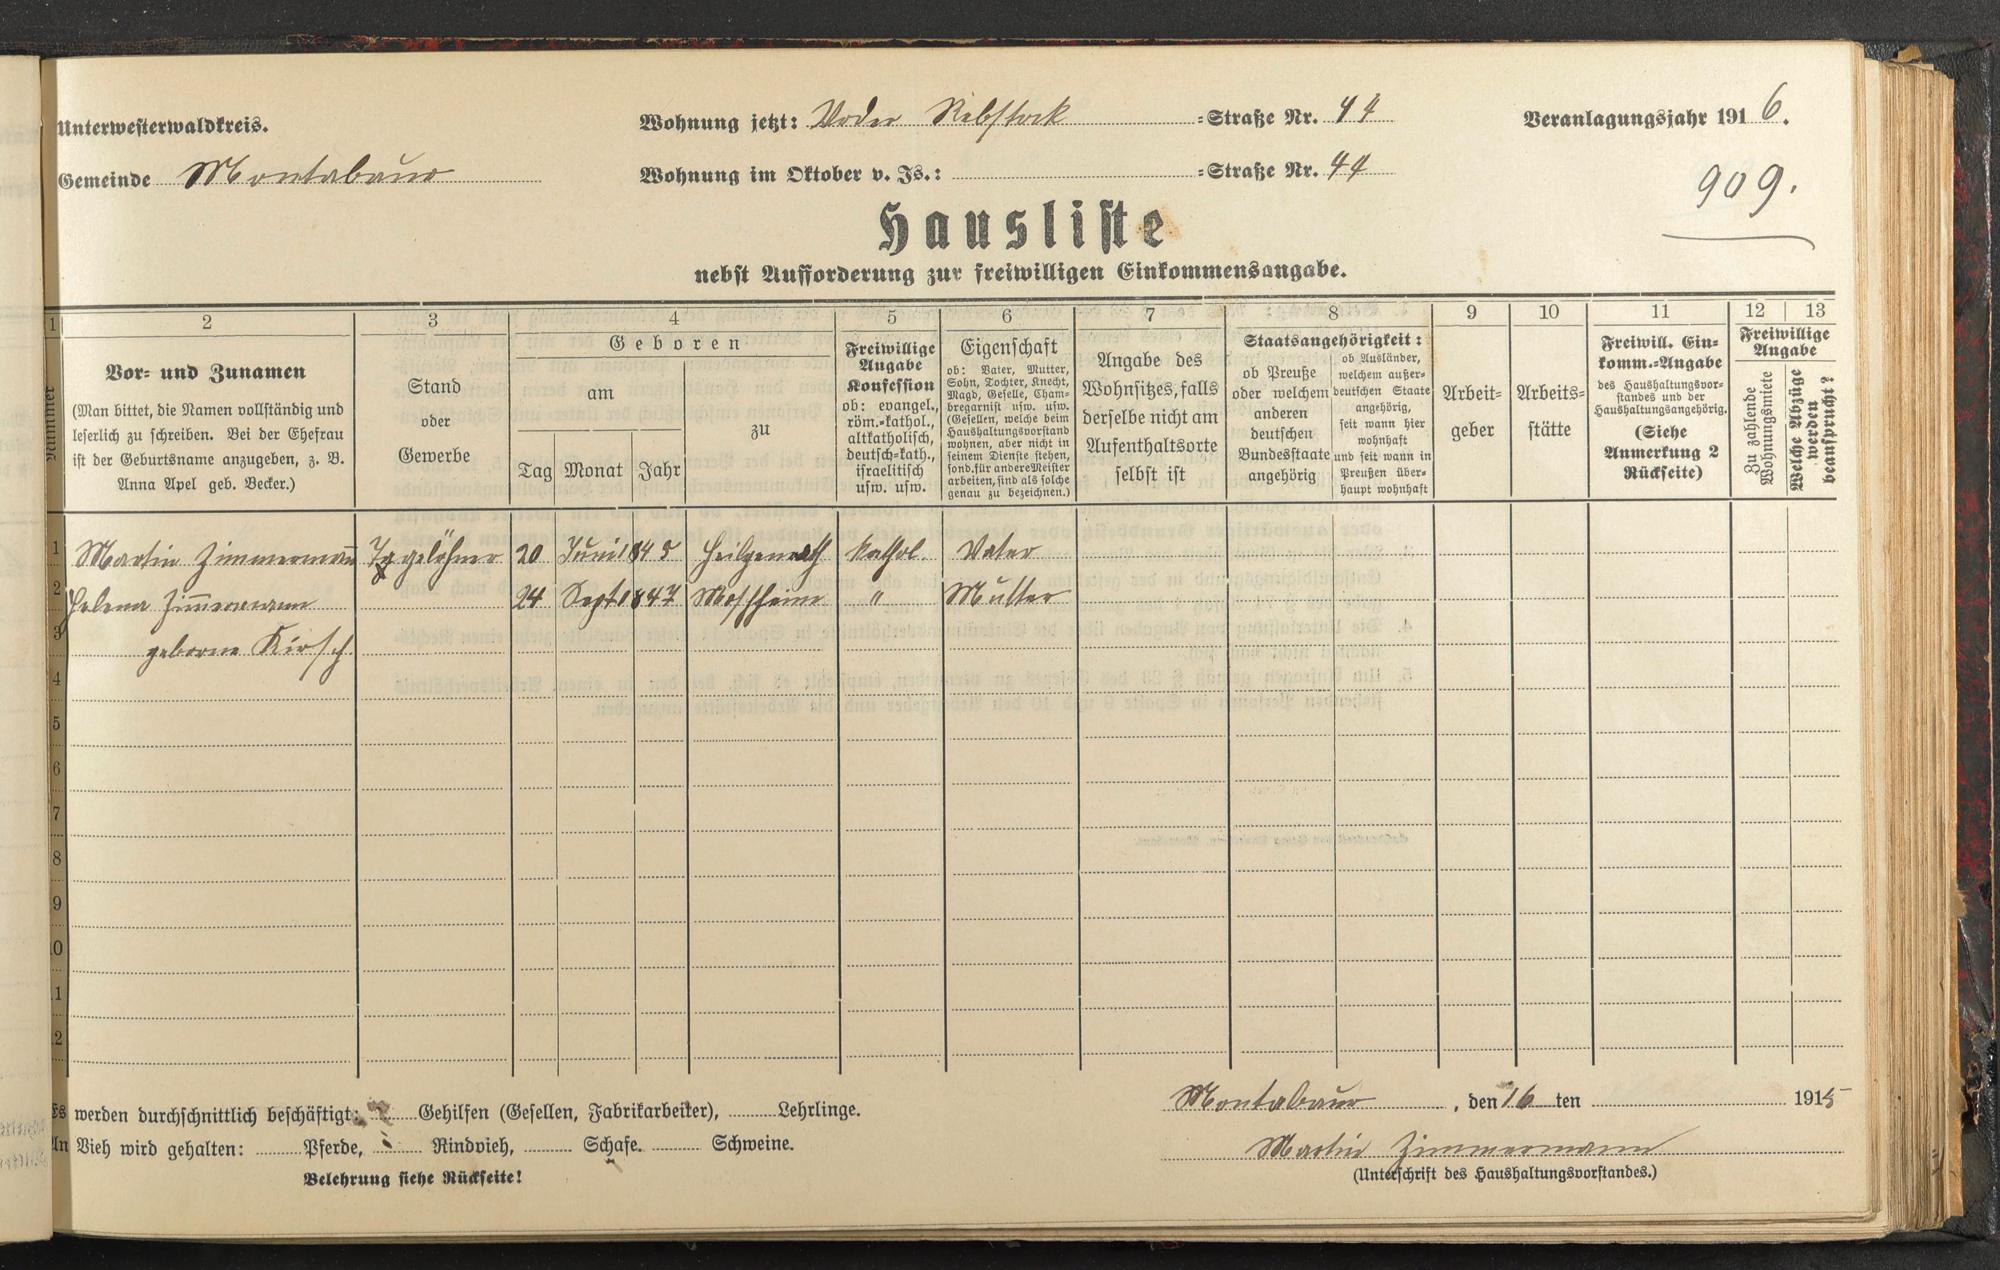 Unterwesterwaldkreis.
Gemeinde Montabaur
Wohnung jetzt: Voder Rebstock -Straße Nr. 44
Wohnung im Oktober v. Js.: -Straße Nr. 44
Veranlagungsjahr 1916.
909.
Hausliste
nebst Aufforderung zur freiwilligen Einkommensangabe.
1 2 3 4 5 6 7 8 9 10 11 12 13
Nummer
Vor- und Zunamen
(Man bittet, die Namen vollständig und
leserlich zu schreiben. Bei der Ehefrau
ist der Geburtsname anzugeben, z. B.
Anna Apel geb. Becker.)
Stand
oder
Gewerbe
Geboren
am
Tag Monat Jahr
zu
Freiwillige
Angabe
Konfession
ob: evangel.,
röm.-kathol.,
altkatholisch,
deutsch-kath.,
israelitisch
usw. usw.
Eigenschaft
ob: Vater, Mutter,
Sohn, Tochter, Knecht,
Magd, Geselle, Cham-
bregarnist usw. usw.
(Gesellen, welche beim
Haushaltungsvorstand
wohnen, aber nicht in
seinem Dienste stehen,
sond. für andere Meister
arbeiten, sind als solche
genau zu bezeichnen.)
Angabe des
Wohnsitzes, falls
derselbe nicht am
Aufenthaltsorte
selbst ist
Staatsangehörigkeit:
ob Preuße
oder welchem
anderen
deutschen
Bundesstaate
angehörig
ob Ausländer,
welchem außer-
deutschen Staate
angehörig,
seit wann hier
wohnhaft
und seit wann in
Preußen über-
haupt wohnhaft
Arbeit-
geber
Arbeits-
stätte
Freiwill. Ein-
komm.-Angabe
des Haushaltungsvor-
standes und der
Haushaltungsangehörig.
(Siehe
Anmerkung 2
Rückseite)
Freiwillige
Angabe
Zu zahlende
Wohnungsmiete
Welche Abzüge
werden
beansprucht?
1 Martin Zimmermann Taggelöhner 20 Juni 1845 Heilgenroth kathol. Vater
2 Helena Zimmermann 24 Sept 1847 Moschheim " Mutter
3 geborne Kirsch
4
5
6
7
8
9
10
11
12
Es werden durchschnittlich beschäftigt: Gehilfen (Gesellen, Fabrikarbeiter), Lehrlinge.
An Vieh wird gehalten: Pferde, Rindvieh, Schafe. Schweine.
Belehrung siehe Rückseite!
Montabaur, den 16 ten 1915
Martin Zimmermann
(Unterschrift des Haushaltungsvorstandes.)